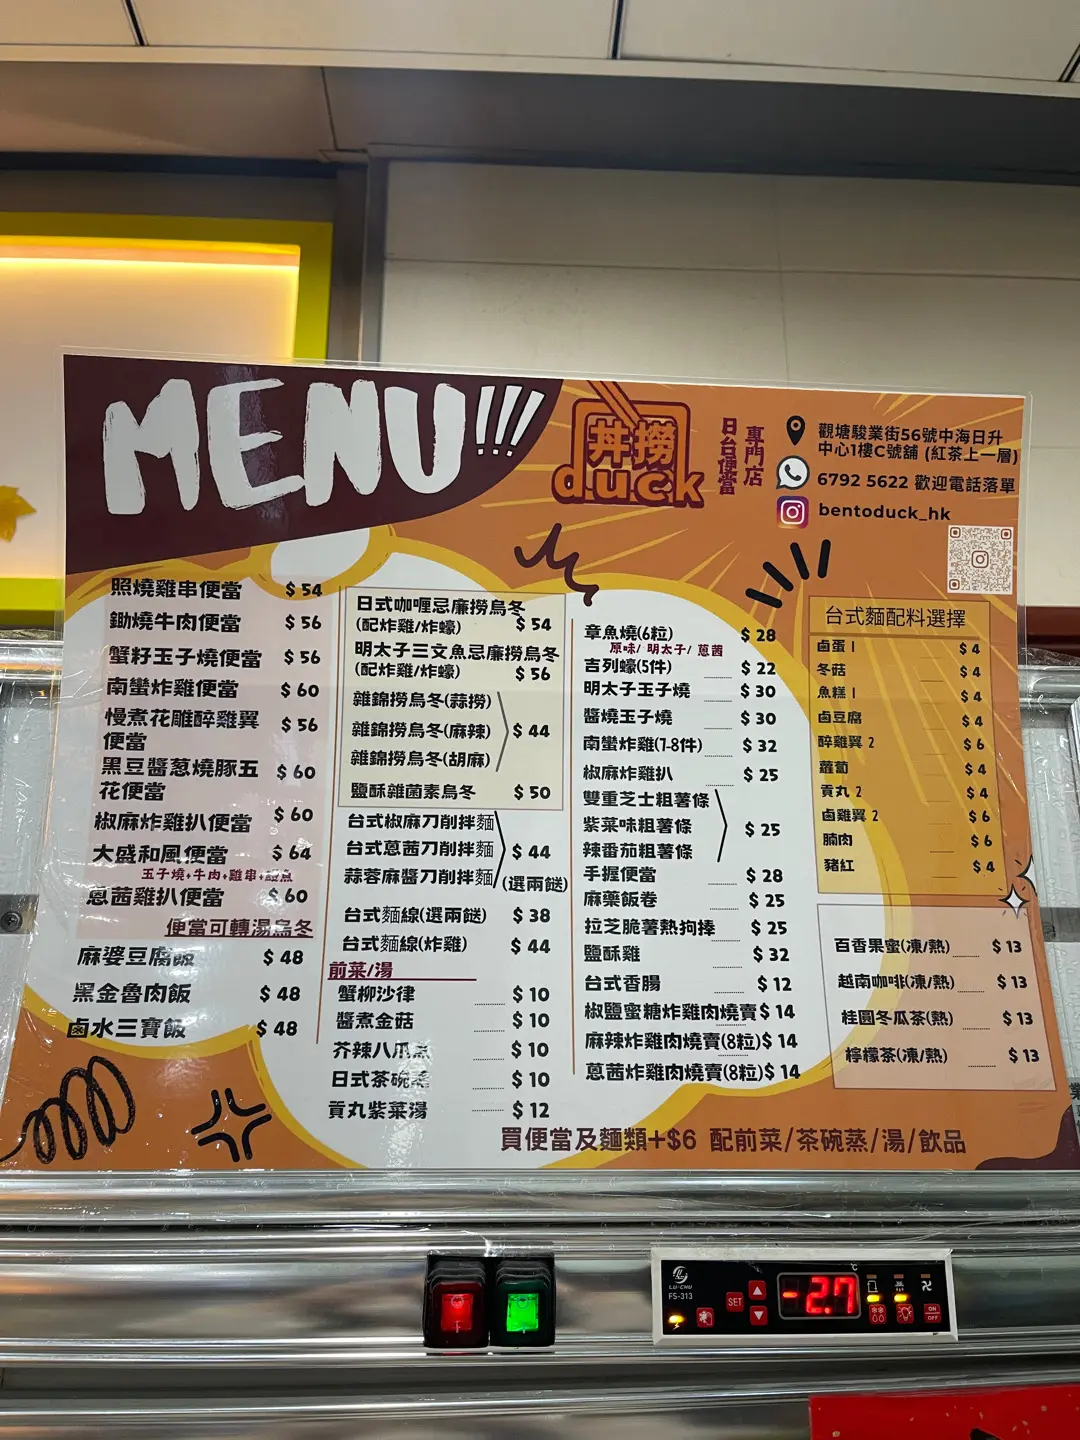 MENU!!!
丼撈
duck
日台便當
專門店
觀塘駿業街56號中海日升
中心1樓C號舖 (紅茶上一層)
6792 5622 歡迎電話落單
bentoduck_hk
照燒雞串便當 $ 54
鋤燒牛肉便當 $ 56
蟹籽玉子燒便當 $ 56
南蠻炸雞便當 $ 60
慢煮花雕醉雞翼
便當 $ 56
黑豆醬葱燒豚五
花便當 $ 60
椒麻炸雞扒便當 $ 60
大盛和風便當 $ 64
玉子燒+牛肉+雞串+鰻魚
蔥茜雞扒便當 $ 60
便當可轉湯烏冬
麻婆豆腐飯 $ 48
黑金魯肉飯 $ 48
鹵水三寶飯 $ 48
日式咖喱忌廉撈烏冬
(配炸雞/炸蠔) $ 54
明太子三文魚忌廉撈烏冬
(配炸雞/炸蠔) $ 56
雜錦撈烏冬(蒜撈)
雜錦撈烏冬(麻辣) $ 44
雜錦撈烏冬(胡麻)
鹽酥雜菌素烏冬 $ 50
台式椒麻刀削拌麵
台式蔥茜刀削拌麵 $ 44
蒜蓉麻醬刀削拌麵 (選兩餸)
台式麵線(選兩餸) $ 38
台式麵線(炸雞) $ 44
前菜/湯
蟹柳沙律 $ 10
醬煮金菇 $ 10
芥辣八爪魚 $ 10
日式茶碗蒸 $ 10
貢丸紫菜湯 $ 12
章魚燒(6粒) $ 28
原味/ 明太子/ 蔥茜
吉列蠔(5件) $ 22
明太子玉子燒 $ 30
醬燒玉子燒 $ 30
南蠻炸雞(7-8件) $ 32
椒麻炸雞扒 $ 25
雙重芝士粗薯條
紫菜味粗薯條 $ 25
辣番茄粗薯條
手握便當 $ 28
麻藥飯卷 $ 25
拉芝脆薯熱狗捧 $ 25
鹽酥雞 $ 32
台式香腸 $ 12
椒鹽蜜糖炸雞肉燒賣 $ 14
麻辣炸雞肉燒賣(8粒) $ 14
蔥茜炸雞肉燒賣(8粒) $ 14
台式麵配料選擇
鹵蛋 1 $ 4
冬菇 $ 4
魚糕 1 $ 4
鹵豆腐 $ 4
醉雞翼 2 $ 6
蘿蔔 $ 4
貢丸 2 $ 4
鹵雞翼 2 $ 6
腩肉 $ 6
豬紅 $ 4
百香果蜜(凍/熱) $ 13
越南咖啡(凍/熱) $ 13
桂圓冬瓜茶(熱) $ 13
檸檬茶(凍/熱) $ 13
買便當及麵類+$6 配前菜/茶碗蒸/湯/飲品
LU-CHU
FS-313
SET
-2.7
°C
ON
OFF